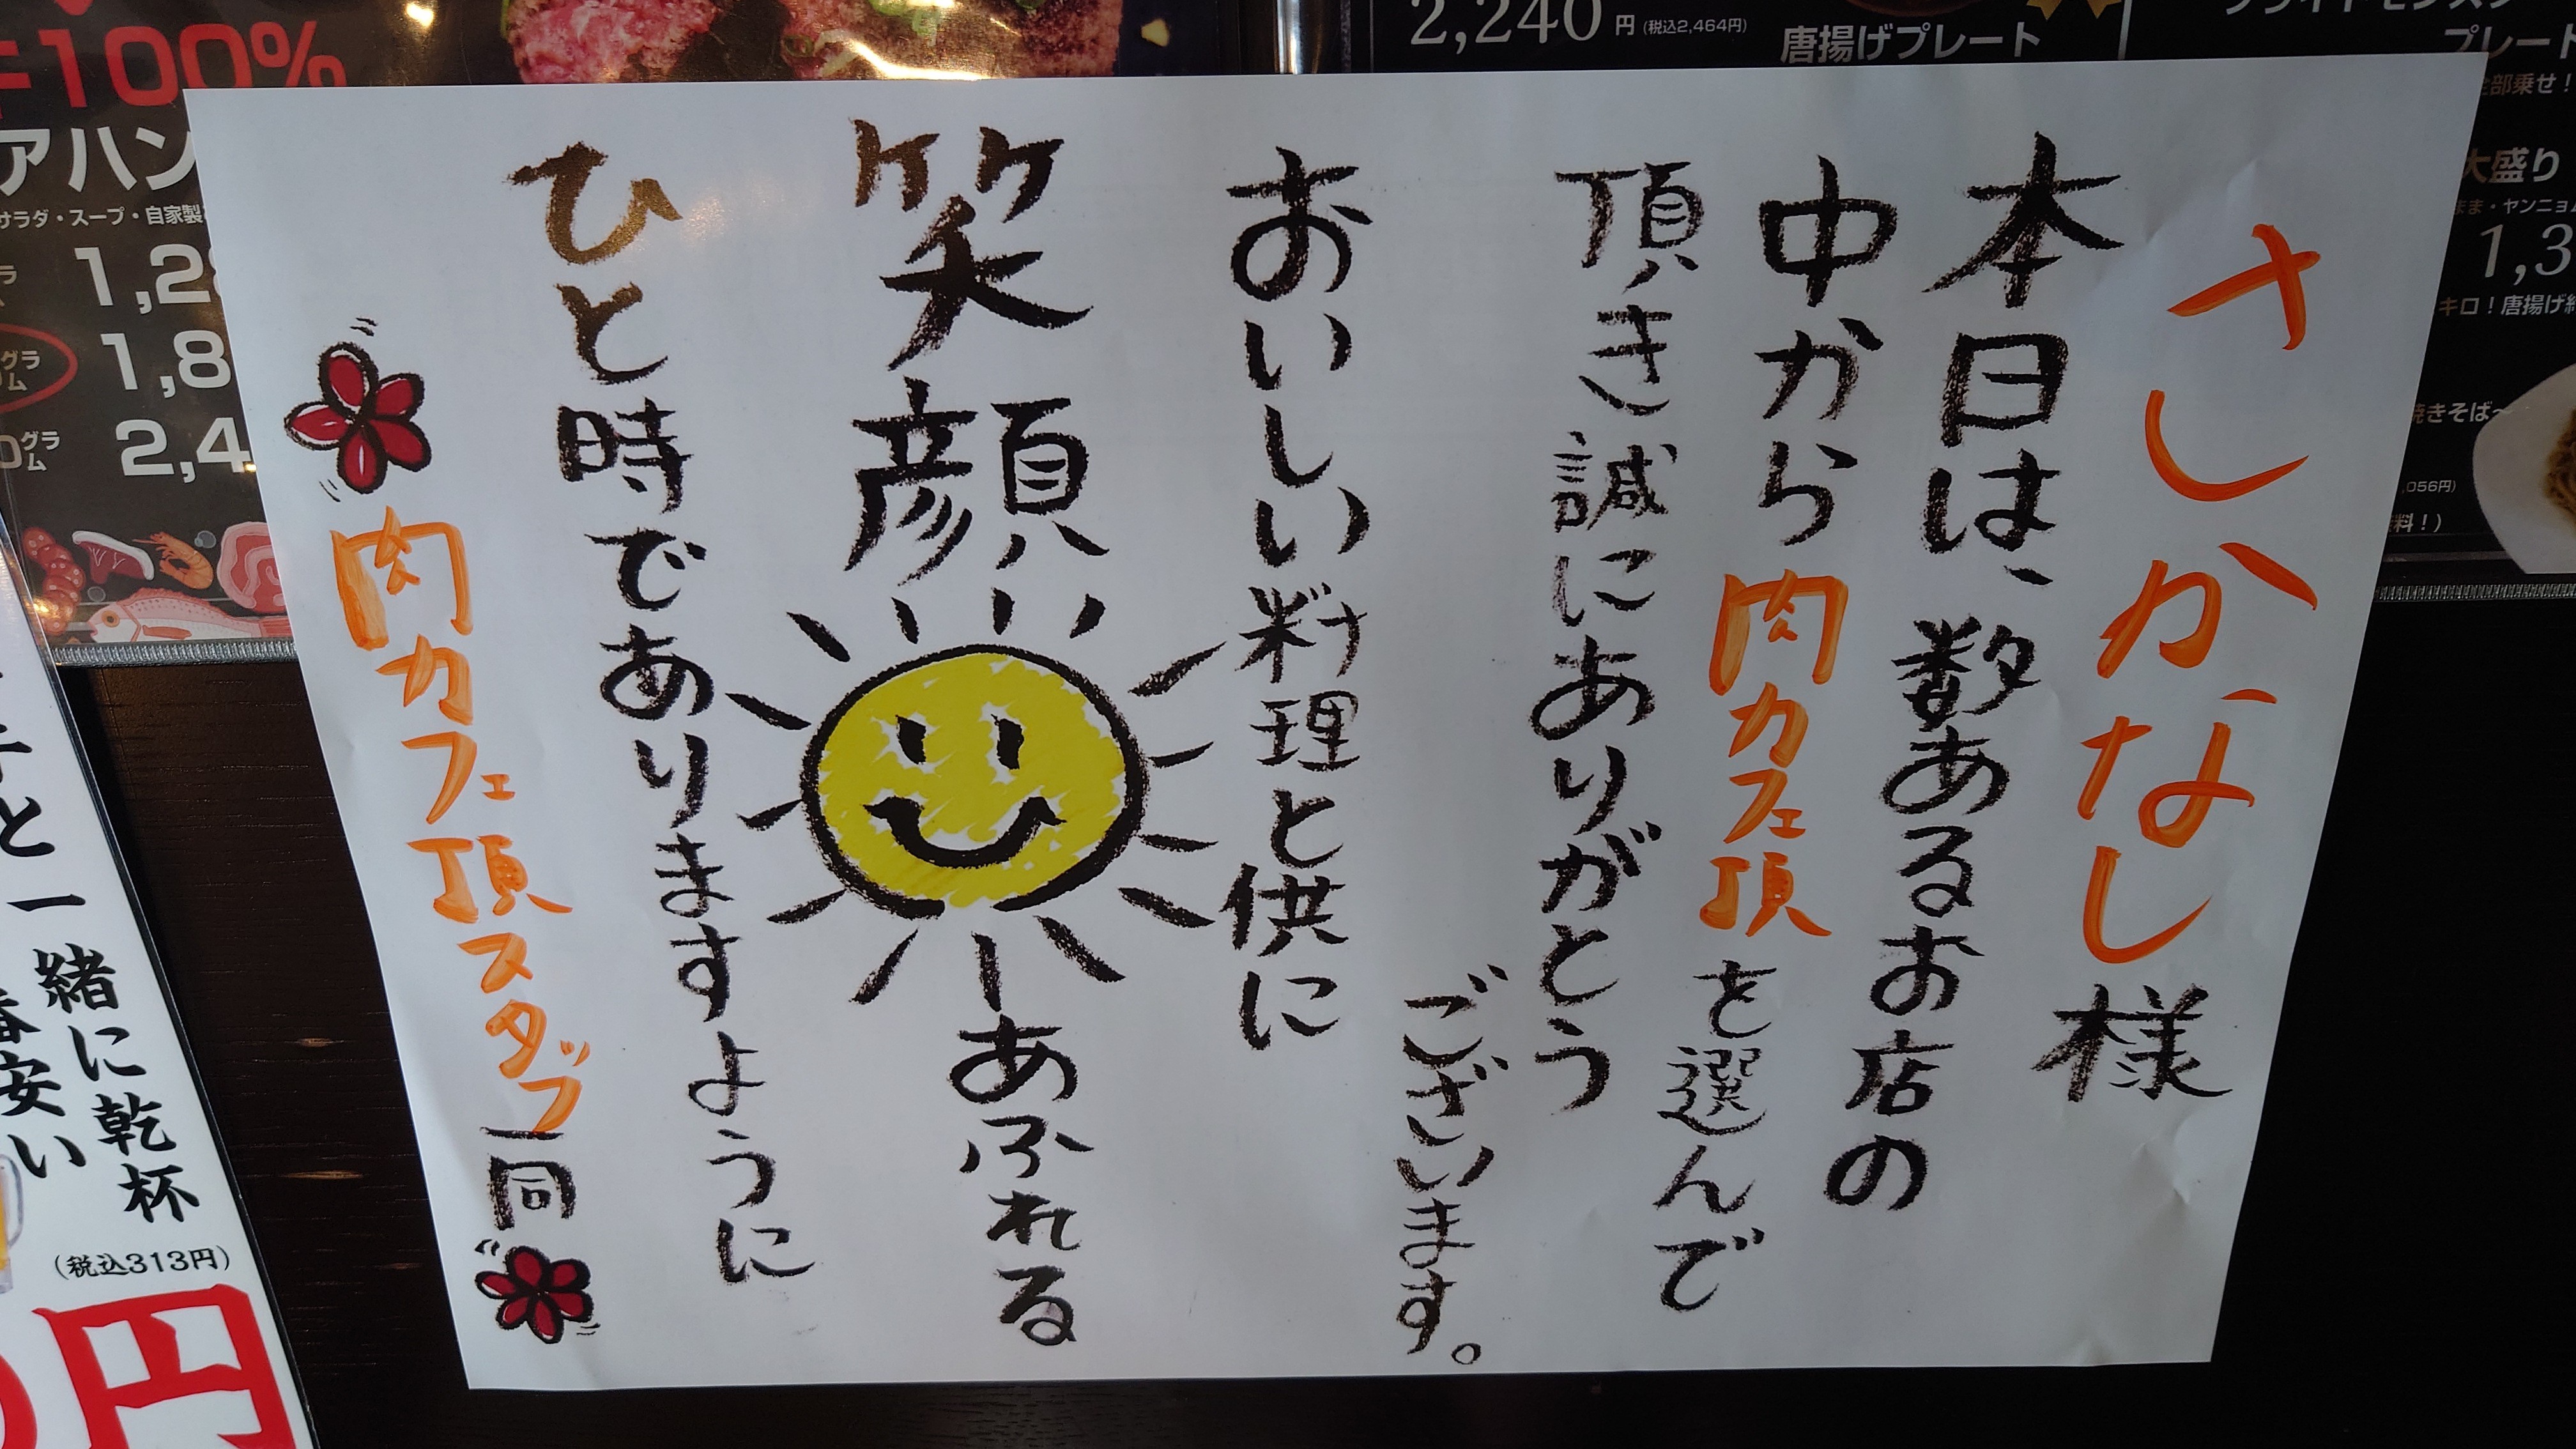 さしかなし様
本日は、数あるお店の
中から肉カフェ頂を選んで
頂き誠にありがとう
ございます。
おいしい料理と供に
笑顔あふれる
ひと時でありますように
肉カフェ頂スタッフ一同
100%
アハン
サラダ・スープ・自家製
グラム
グラム
2,240円(税込2,464円)
唐揚げプレート
プレート
全部乗せ！
大盛り
まま・ヤンニョム
キロ！唐揚げ
焼きそば～
056円)
料！)
と一緒に乾杯
番安い
(税込313円)
円